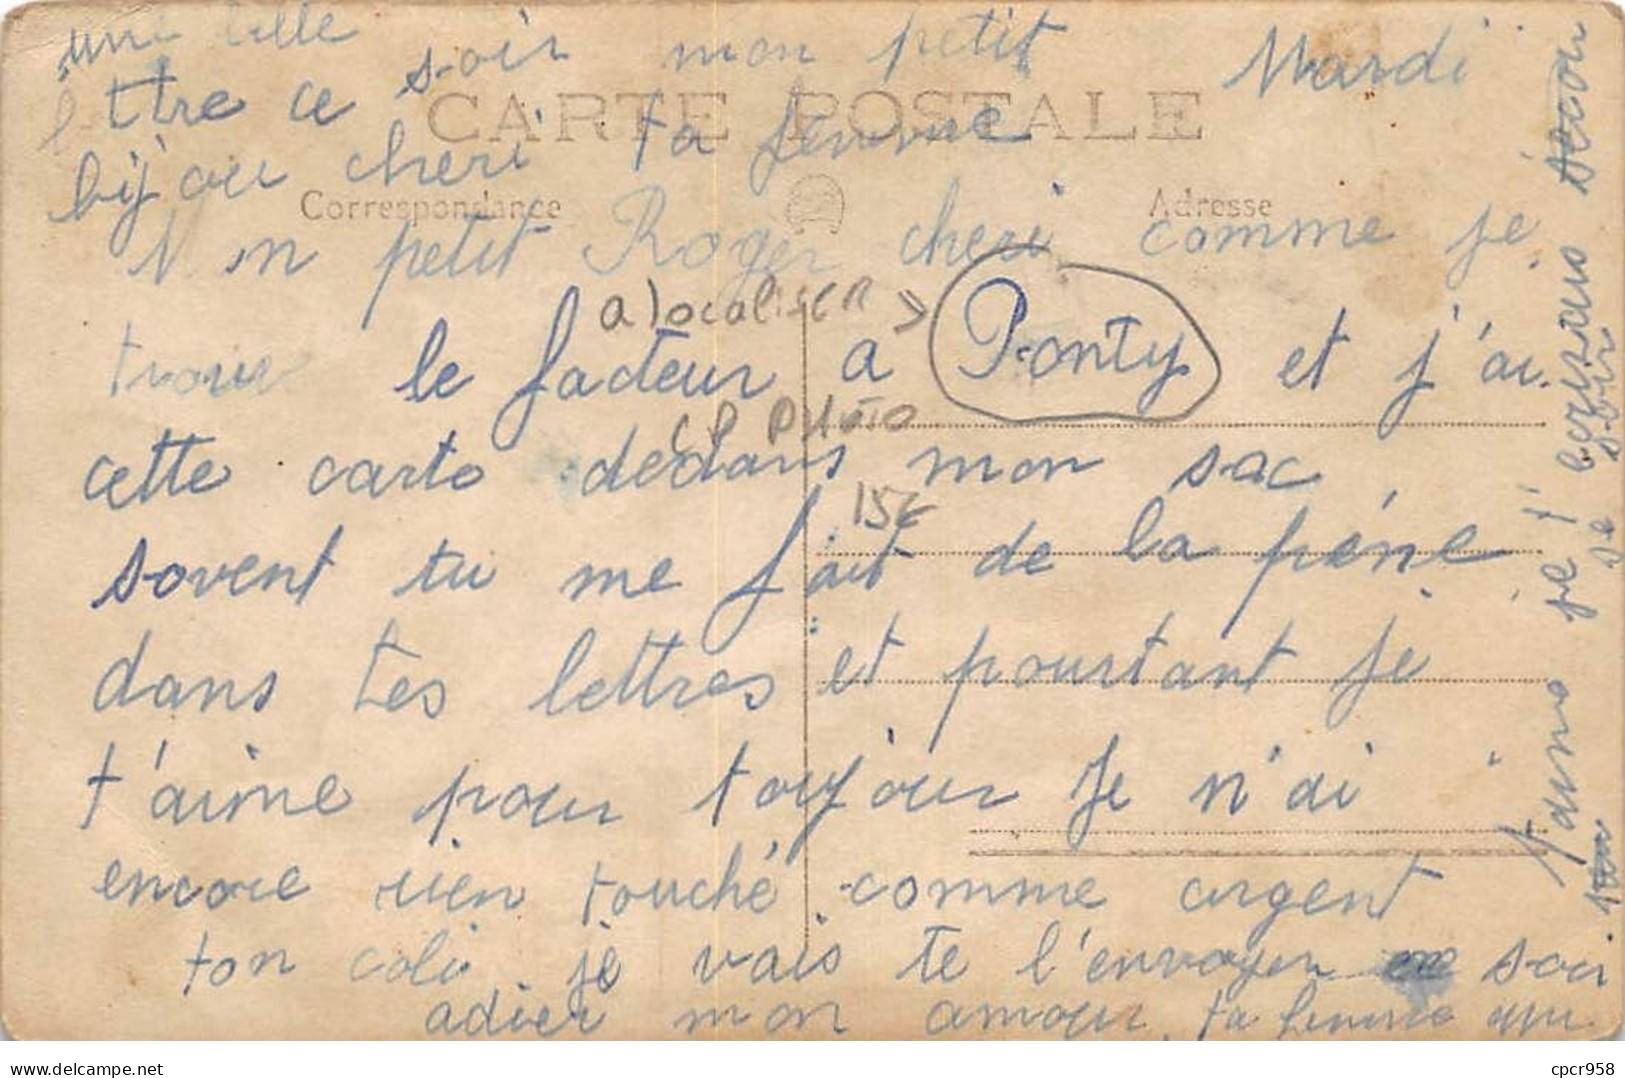 une belle
Mardi
lettre ce soir mon petit
CARTE POSTALE
bijou cheri ta femme
Correspondance
Adresse
Mon petit Roger cheri comme je
a localiser >
trouve le facteur a Ponty et j'ai
CP PHOTO
cette carto dedans mon sac
15€
sovent tu me fait de la péne
dans tes lettres et pourtant je
t'aime pour toujour Je n'ai
encore rien touché comme argent
ton coli je vais te l'envoyer soir
adier mon amour ta femme qui
t'aime je t'
se soir
cpcr958